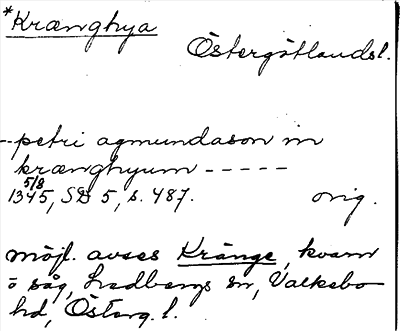 *Krænghya
Östergötlandsl.
--petri agmundason in
krænghyum -----
5/8
1345, SD 5, s. 487. orig.
möjl. avses Kränge, kvarn
o såg, Ledbergs sn, Valkebo
hd, Österg. l.